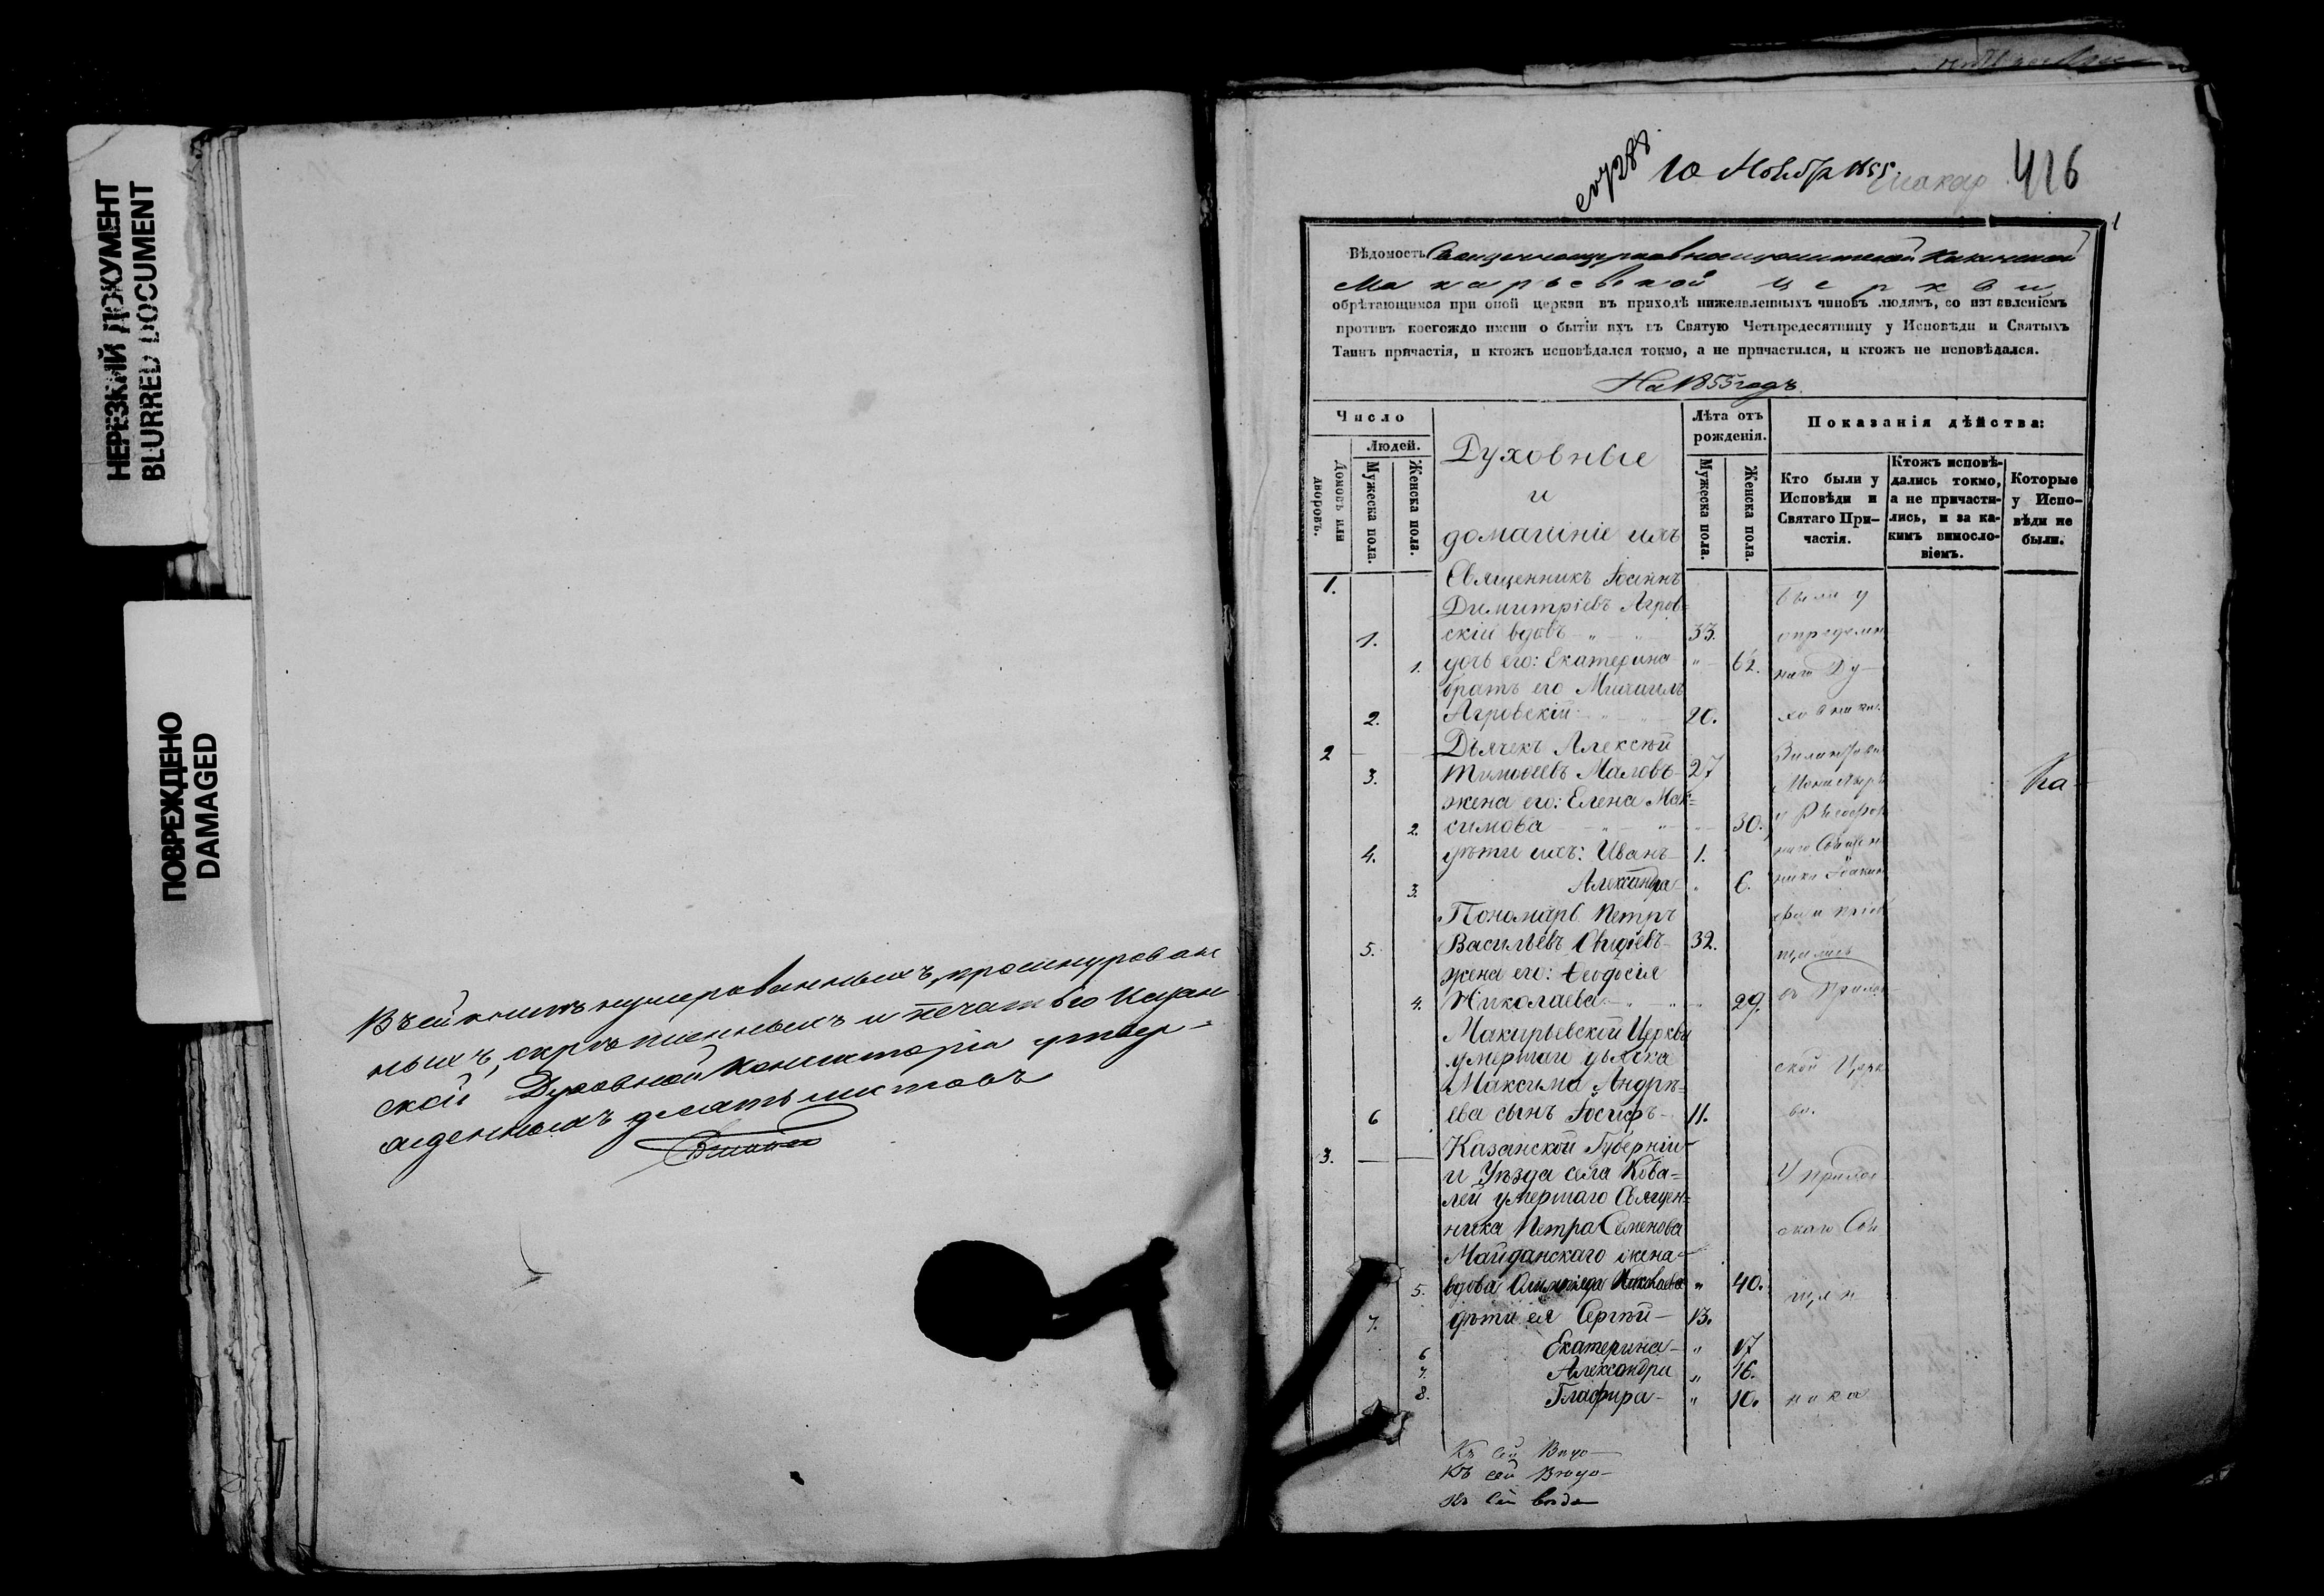 НЕРЕЗКИЙ ДОКУМЕНТ
BLURRED DOCUMENT
ПОВРЕЖДЕНО
DAMAGED
Въ сей книгѣ нумерованныхъ, прошнурован
ныхъ, скрѣпленныхъ и печатью Казан
ской Духовной Консисторіи утвер-
жденныхъ десять листовъ
10 Ноября 1855
416
Вѣдомость
Макарьевской церкви
обрѣтающимся при оной церкви въ приходѣ нижеявленныхъ чиновъ людямъ, со изъявленіемъ
противъ коегождо имени о бытіи ихъ въ Святую Четыредесятницу у Исповѣди и Святыхъ
Таинъ причастія, и ктожъ исповѣдался токмо, а не причастился, и ктожъ не исповѣдался.
На 1855 годъ.
Число
Людей.
Домовъ или дворовъ.
Мужеска пола.
Женска пола.
Духовные
и
домашніе ихъ
Лѣта отъ рожденія.
Мужеска пола.
Женска пола.
Показанія дѣйства:
Кто были у Исповѣди и Святаго При-частія.
Ктожъ исповѣ-дались токмо, а не причасти-лись, и за ка-кимъ винослo-віемъ.
Которые у Испо-вѣди не были.
1. Священникъ Іоаннъ были у
Димитріевъ Агров-
1. скій вдовъ 33. определен
1. дочь его: Екатерина 6½. наго Ду-
братъ его Михаилъ
2. Агровскій 20. ховника
2 Дьячекъ Алексѣй
3. Тимоѳеевъ Маловъ 27
жена его: Елена Мак-
2. симова 30.
4. дѣти ихъ: Иванъ 1.
3. Александра 6.
Пономарь Петръ
5. Васильевъ 32.
жена его: Ѳеодосія
4. Николаева 29.
Макарьевской Церкви
умершаго дьячка ской Церк
Максима Андрѣ-
6 ева сынъ Іосифъ 11. ви.
Казанской Губерніи
3. и Уѣзда села Кова- У приход
лей умершаго Священ-
ника Петра Семенова скаго Свя
Майданскаго жена
5. вдова Николаева 40. щен
7. дѣти ея Сергѣй 13.
6 Екатерина 17
7. Александра 16.
8. Глафира 10. ника
Къ сей
Къ сей
Къ сей